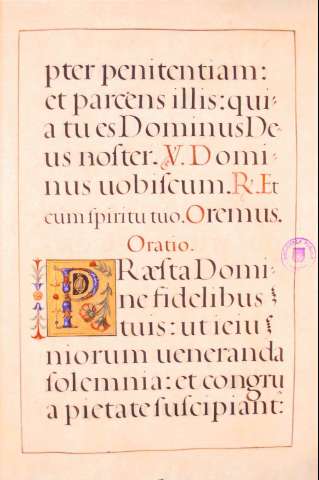 pter penitentiam:
et parcens illis: qui-
a tu es Dominus De-
us noster. V. Domi-
nus uobiscum. R. Et
cum spiritu tuo. Oremus.
Oratio.
Præsta Domi-
ne fidelibus
tuis: ut ieiu
niorum ueneranda
solemnia: et congrua
a pietate suscipiant: